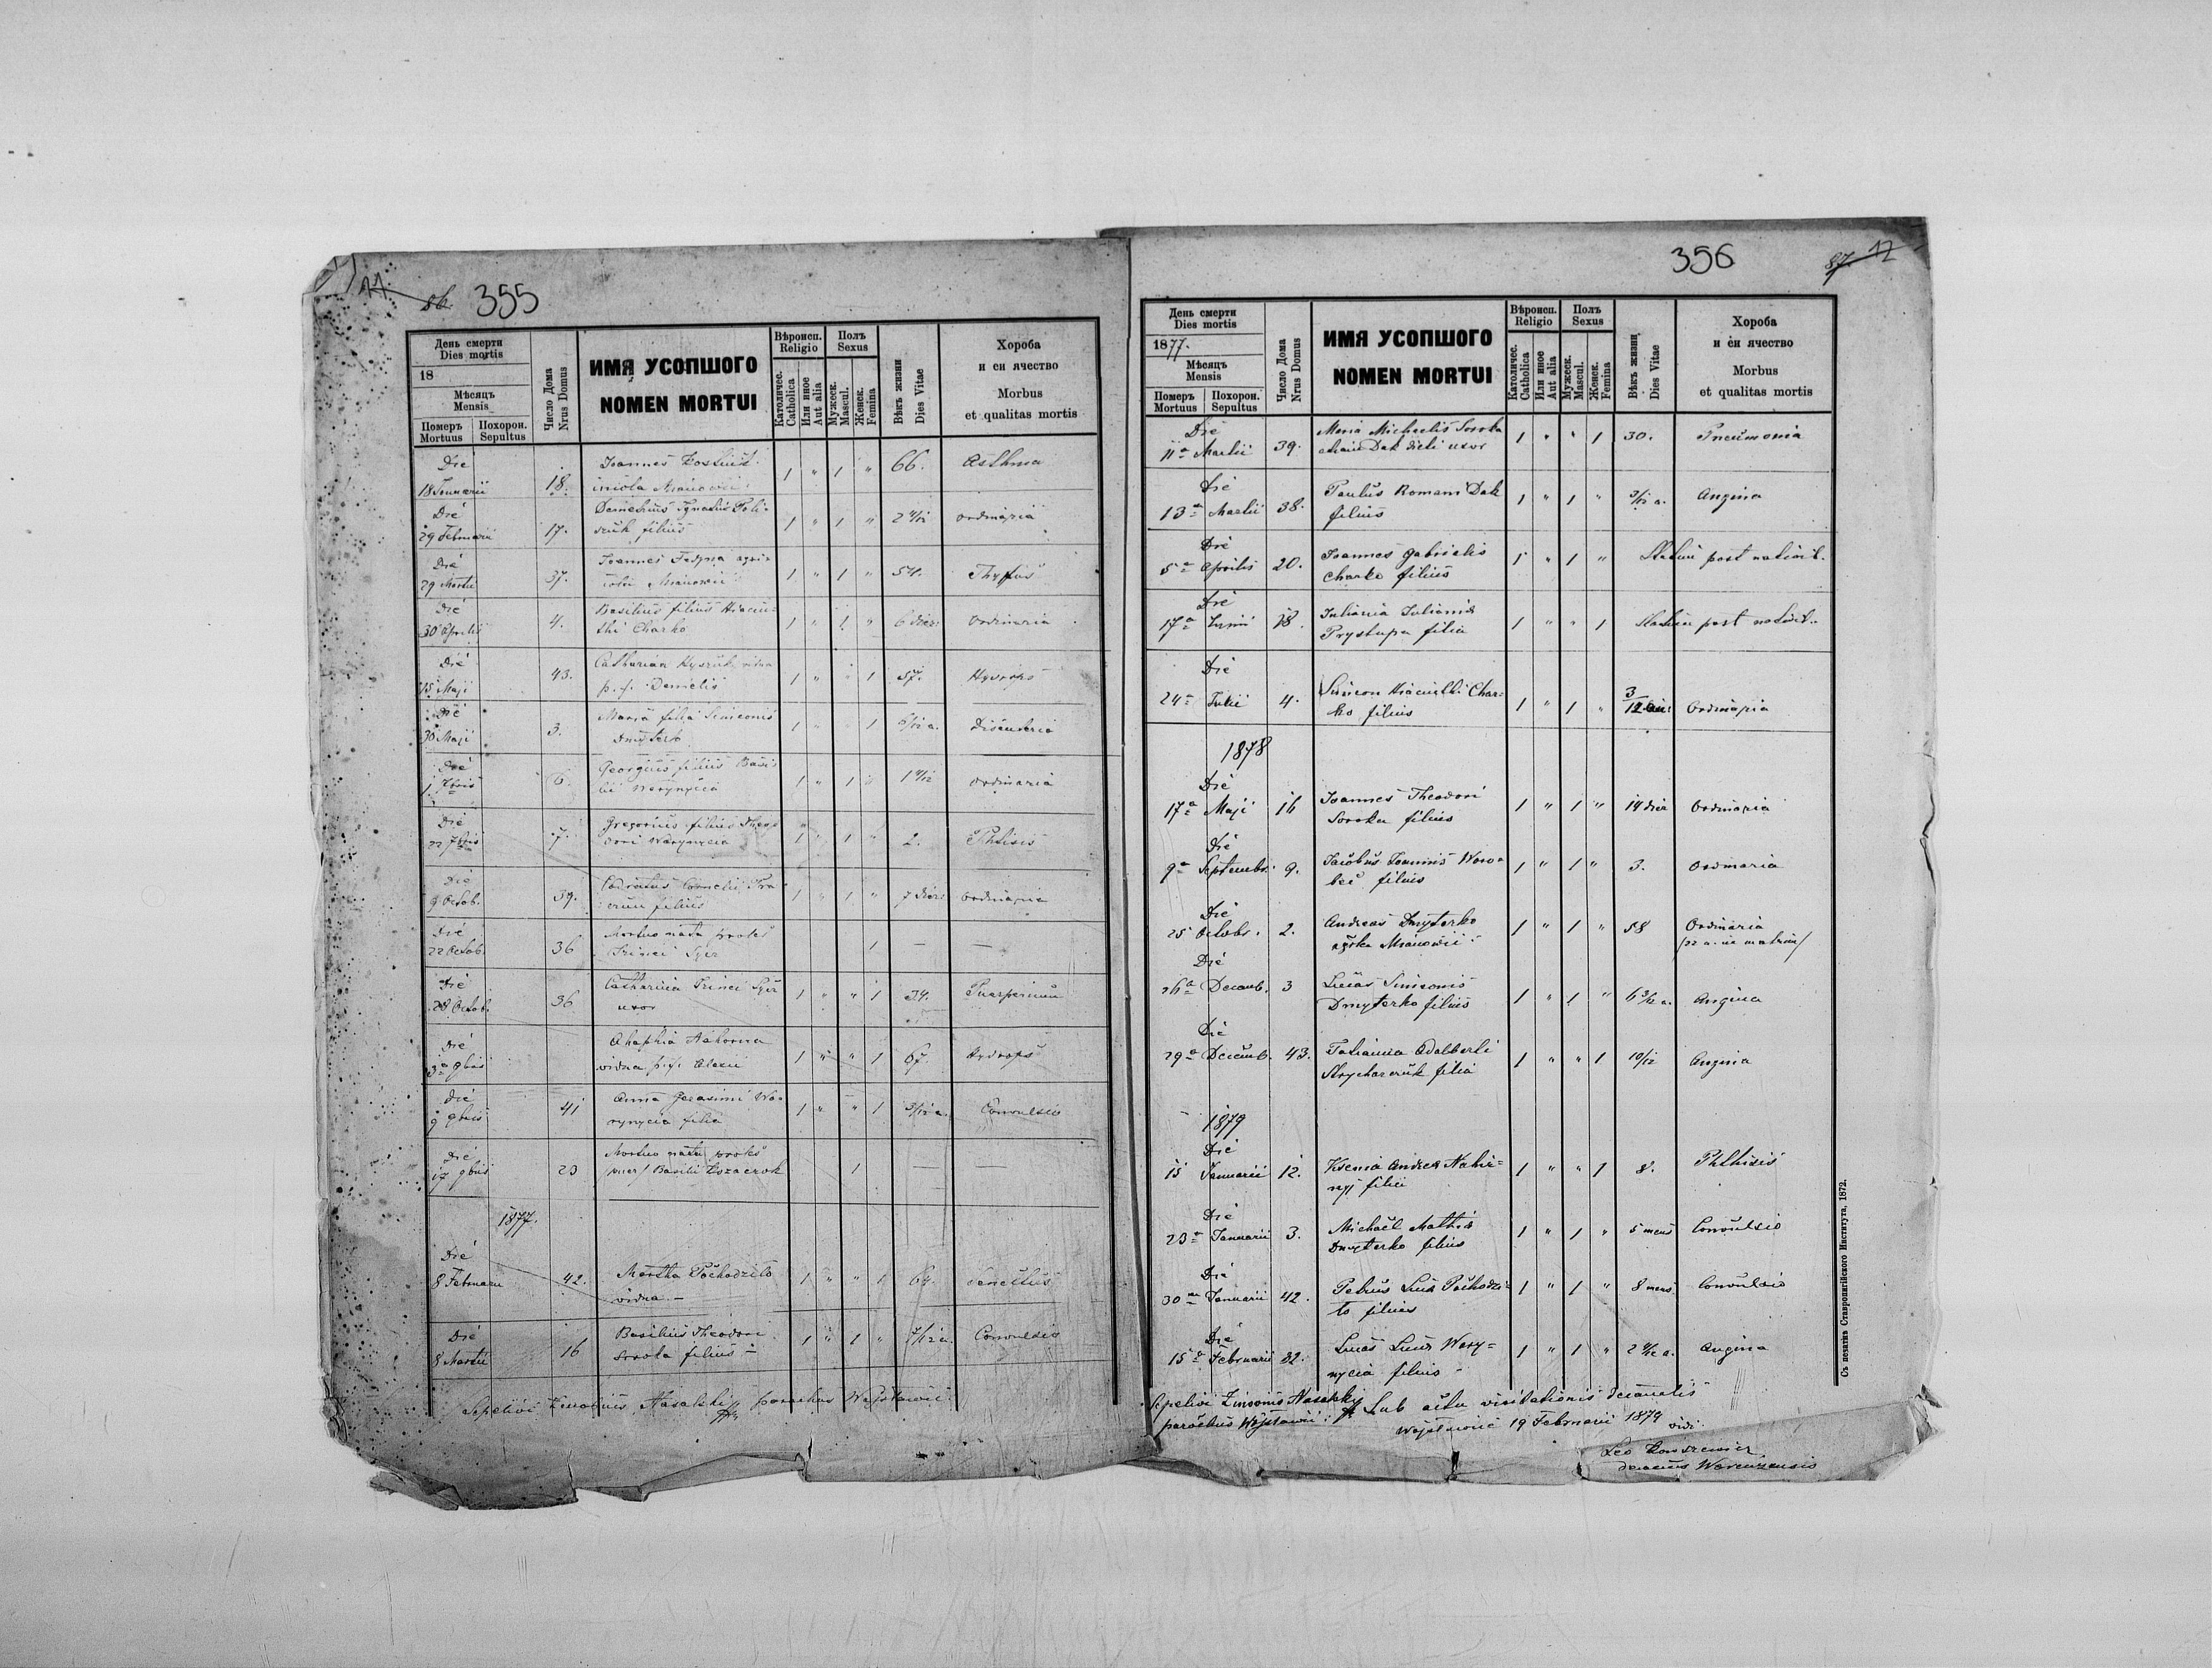 11 86. 355
День смерти
Dies mortis
18
Мѣсяцъ
Mensis
Померъ
Mortuus
Похорон.
Sepultus
Число Дома
Nrus Domus
ИМЯ УСОПШОГО
NOMEN MORTUI
Вѣроисп.
Religio
Католичес.
Catholica
Или иное
Aut alia
Полъ
Sexus
Мужеск.
Mascul.
Женск.
Femina
Вѣкъ жизни
Dies Vitae
Хороба
и єи ячество
Morbus
et qualitas mortis
Die
18 Januarii 18. Joannes 1 " 1 " 66. Asthma
Die
29 Februarii 17. Demetrius Ignatii Poli=
szuk filius 1 " 1 " 2 ordinaria
Die
29 Martii 37. Joannes Fedyna 1 " 1 " 54. Thyfus
Die
30 Aprilis 4. Basilius filius Hiacin=
thi Charko 1 " 1 " 6 dier: ordinaria
Die
15 Maji 43. Catharina vidua
p. f. Danielis 1 " " 1 57. Hydrops
Die
30 Maji 3. Maria filia Simeonis
Dmyterko 1 " 1 Disenteria
Die
1 7bris 6. Georgius filius Basi=
lii Warynycia 1 " 1 " ordinaria
Die
22 7bris 7. Gregorius filius Theo=
dori Warynycia 1 " 1 " 2. Phtisis
Die
9 Octob. 39. Cornelii
filius 1 " 1 " 7 dier: ordinaria
Die
22 Octob. 36 Mortuo nata proles
Irinei 1 — —
Die
28 Octob. 36 Catharina Irinei
uxor 1 " " 1 34. Puerperium
Die
3a 9bris Ahaphia
vidua p. f. Alexii 1 " " 1 67. Hydrops
Die
9 9bris 41 Anna Gerasimi Wa=
rynycia filia 1 " " 1 Convulsio
Die
17 9bris 23 Mortuo nata proles
puer/ Basilii Kozaczok 1 — —
1877.
Die
8 Februarii 42. Martha Pochodziło
vidua.— 1 " " 1 64. Senectus
Die
8 Martii 16 Basilius Theodori
Soroka filius 1 " 1 " Convulsio
Sepelivi Nasalski parochus Wojsławic
356 87. 12
День смерти
Dies mortis
1877.
Мѣсяцъ
Mensis
Померъ
Mortuus
Похорон.
Sepultus
Число Дома
Nrus Domus
ИМЯ УСОПШОГО
NOMEN MORTUI
Вѣроисп.
Religio
Католичес.
Catholica
Или иное
Aut alia
Полъ
Sexus
Мужеск.
Mascul.
Женск.
Femina
Вѣкъ жизни
Dies Vitae
Хороба
и єи ячество
Morbus
et qualitas mortis
Die
11a Martii 39. Maria Michaelis Soroka
Dak dicti uxor 1 " " 1 30. Pneumonia
Die
13a Martii 38. Paulus Romani Dak
filius 1 " 1 " 3/12 a. Angina
Die
5a Aprilis 20. Joannes Gabrielis
Charko filius 1 " 1 " Statim post nativit.
Die
17a Junii 18. Juliania Juliani
Prystupa filia 1 " " 1 Statim post nativit.
Die
24a Julii 4. Simeon Hiacinthi Char=
ko filius 1 " 1 " 3/12 Ordinaria
1878
Die
17a Maji 16 Joannes Theodori
Soroka filius 1 " 1 " 14 dier Ordinaria
Die
9a Septembr. 9. Jacobus Joannis Woro=
bec filius 1 " 1 " 3. Ordinaria
Die
25 Octobr. 2. Andreas Dmyterko
1 " 1 " 58 Ordinaria
Die
26a Decemb. 3 Lucas Simeonis
Dmyterko filius 1 " 1 " 6 3/12 a. Angina
Die
29a Decemb. 43. Tatianna Adalberti
Strycharczuk filia 1 " " 1 10/12 Angina
1879
Die
15 Januarii 12. Ksenia Andreæ Nahir=
nyj filia 1 " " 1 8. Phthisis
Die
23a Januarii 3. Michaël Mathiæ
Dmyterko filius 1 " 1 " 5 mens Convulsio
Die
30a Januarii 42. Petrus Lucæ Pochodzi=
ło filius 1 " 1 " 8 mens. Convulsio
Die
15a Februarii 32. Lucas Lucæ Wary=
nycia filius 1 " 1 " Angina
Sepelivi Nasalskij
parochus Wojsławic
Sub actu visitationis decanalis
Wojsławice 19 Februarii 1879 vidi
Leo
decanus Warenzensis
Съ печатнѣ Ставропигійского Института, 1872.